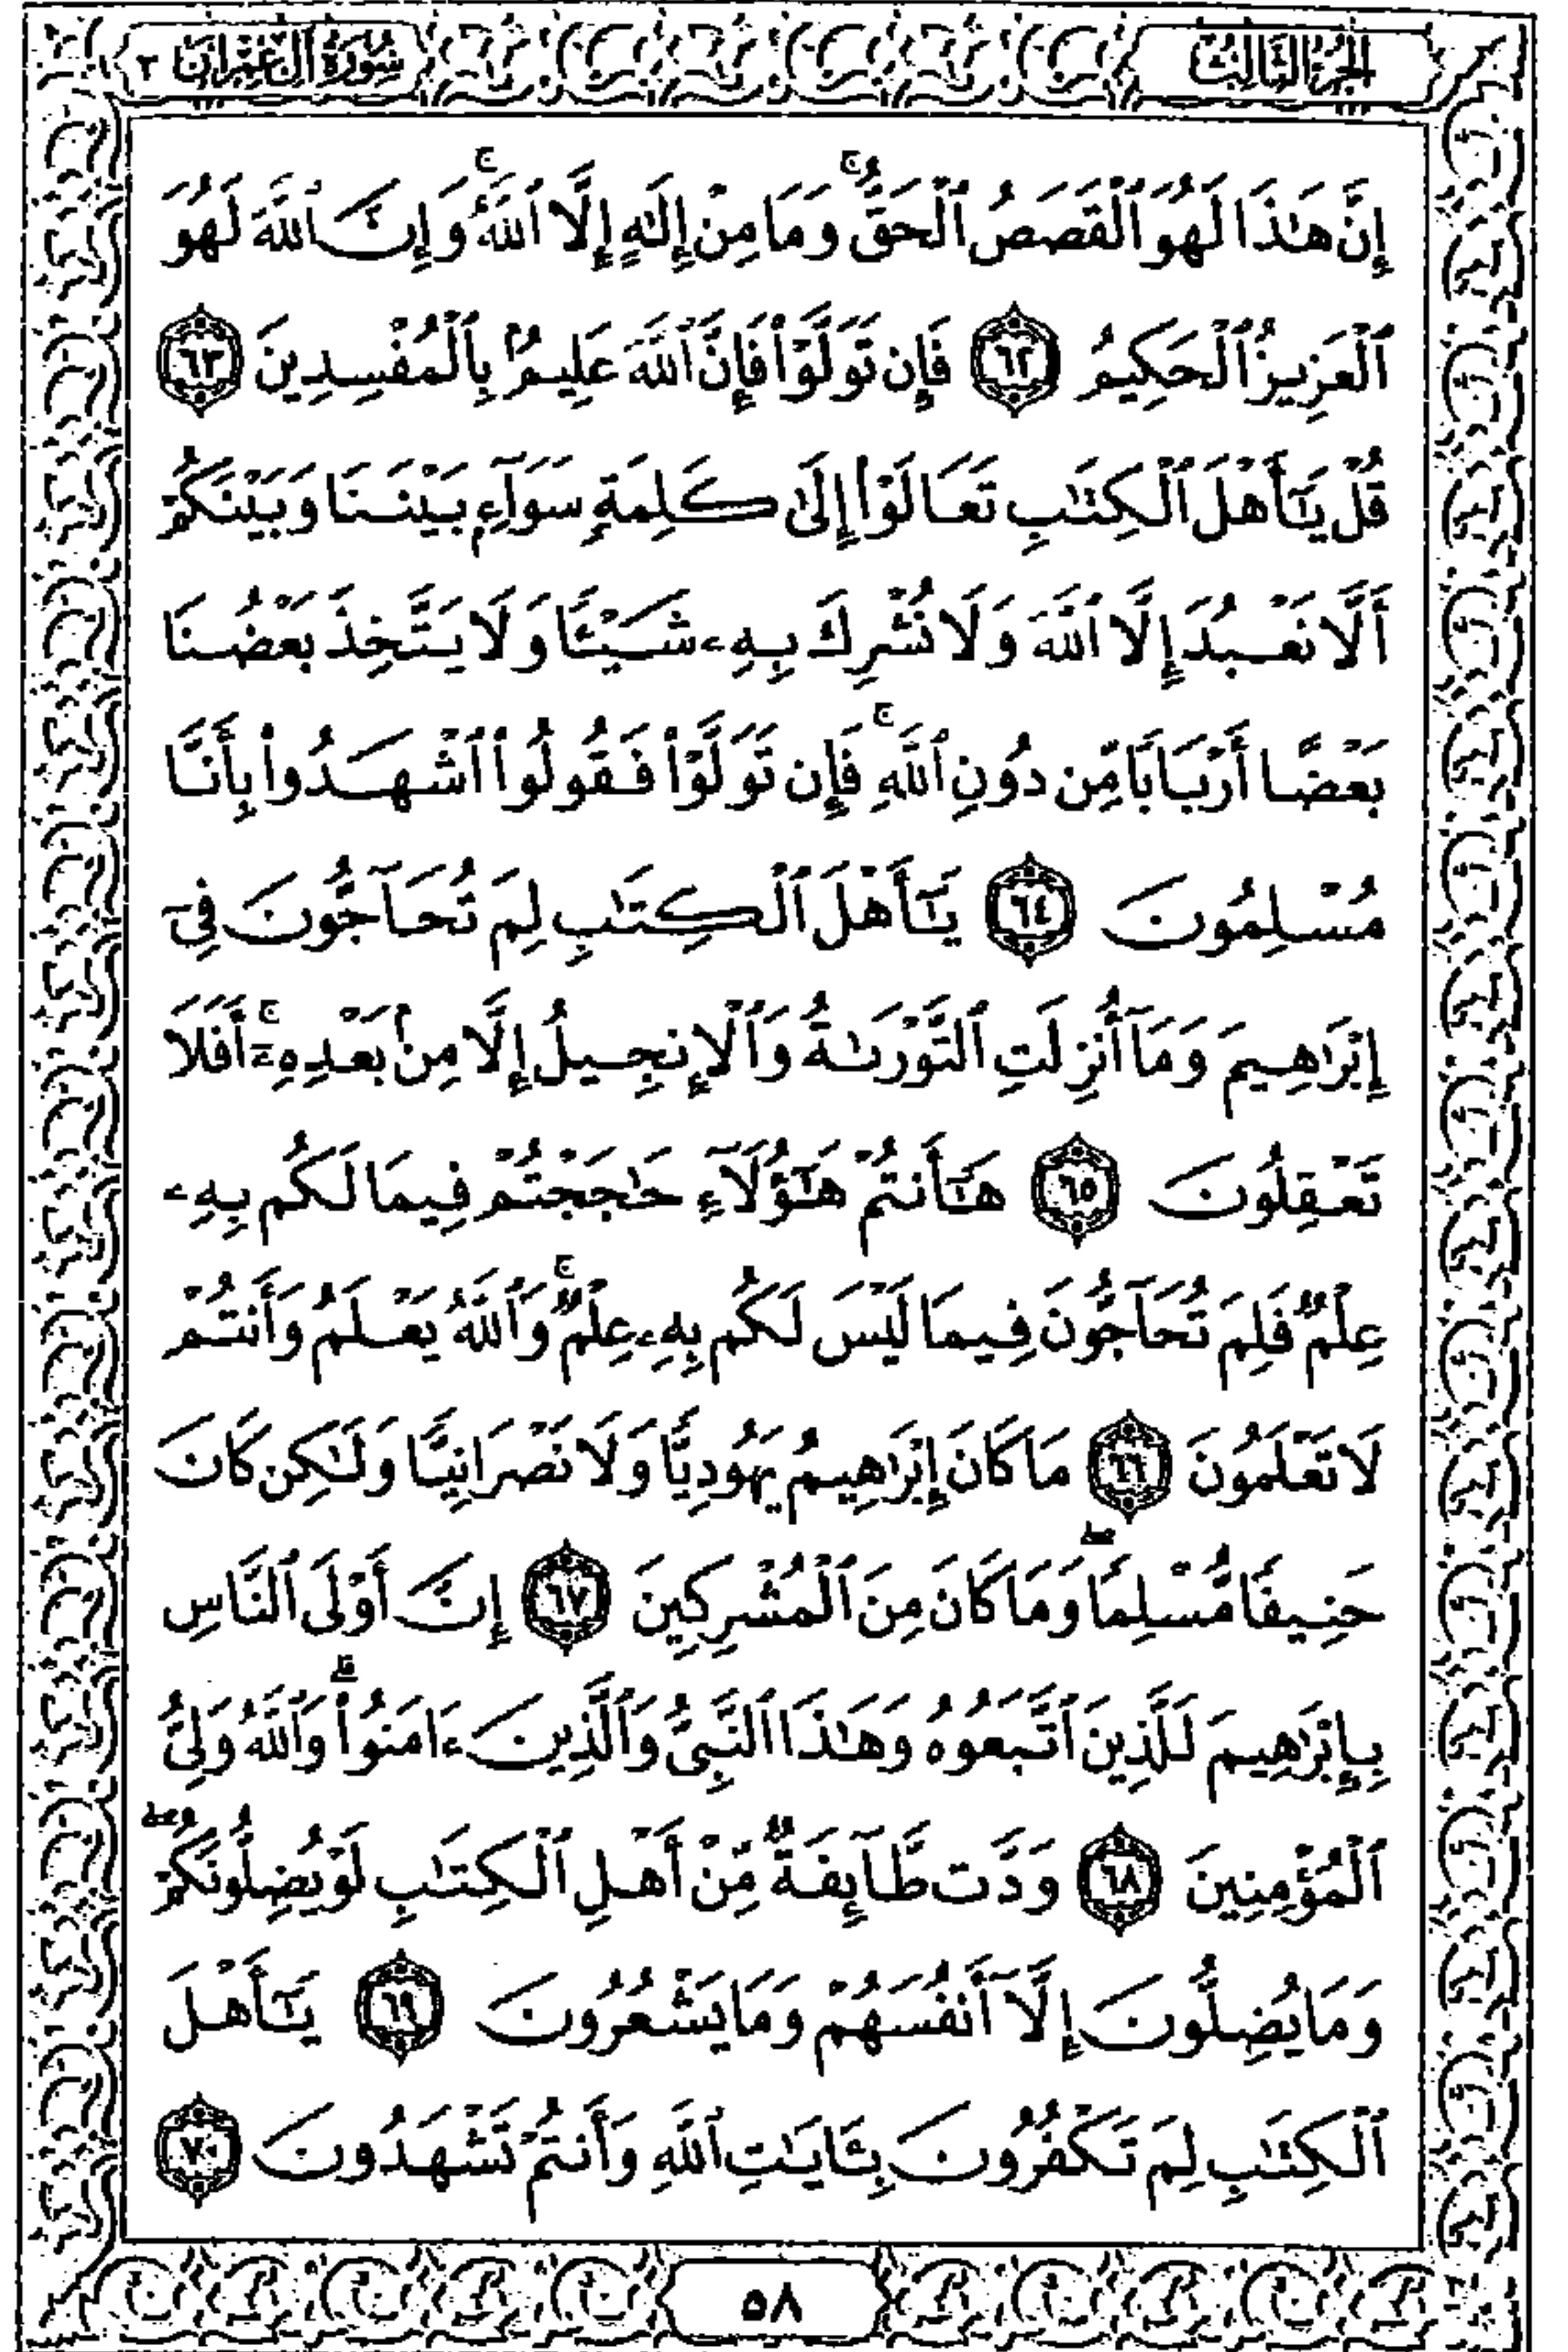 الجزء الثالث
سورة آل عمران ٣
إِنَّ هَٰذَا لَهُوَ ٱلْقَصَصُ ٱلْحَقُّ ۚ وَمَا مِنْ إِلَٰهٍ إِلَّا ٱللَّهُ ۚ وَإِنَّ ٱللَّهَ لَهُوَ
ٱلْعَزِيزُ ٱلْحَكِيمُ ٦٢ فَإِن تَوَلَّوْا۟ فَإِنَّ ٱللَّهَ عَلِيمٌۢ بِٱلْمُفْسِدِينَ ٦٣
قُلْ يَٰٓأَهْلَ ٱلْكِتَٰبِ تَعَالَوْا۟ إِلَىٰ كَلِمَةٍ سَوَآءٍۭ بَيْنَنَا وَبَيْنَكُمْ
أَلَّا نَعْبُدَ إِلَّا ٱللَّهَ وَلَا نُشْرِكَ بِهِۦ شَيْـًٔا وَلَا يَتَّخِذَ بَعْضُنَا
بَعْضًا أَرْبَابًا مِّن دُونِ ٱللَّهِ ۚ فَإِن تَوَلَّوْا۟ فَقُولُوا۟ ٱشْهَدُوا۟ بِأَنَّا
مُسْلِمُونَ ٦٤ يَٰٓأَهْلَ ٱلْكِتَٰبِ لِمَ تُحَآجُّونَ فِىٓ
إِبْرَٰهِيمَ وَمَآ أُنزِلَتِ ٱلتَّوْرَىٰةُ وَٱلْإِنجِيلُ إِلَّا مِنۢ بَعْدِهِۦٓ ۚ أَفَلَا
تَعْقِلُونَ ٦٥ هَٰٓأَنتُمْ هَٰٓؤُلَآءِ حَٰجَجْتُمْ فِيمَا لَكُم بِهِۦ
عِلْمٌ فَلِمَ تُحَآجُّونَ فِيمَا لَيْسَ لَكُم بِهِۦ عِلْمٌ ۚ وَٱللَّهُ يَعْلَمُ وَأَنتُمْ
لَا تَعْلَمُونَ ٦٦ مَا كَانَ إِبْرَٰهِيمُ يَهُودِيًّا وَلَا نَصْرَانِيًّا وَلَٰكِن كَانَ
حَنِيفًا مُّسْلِمًا ۖ وَمَا كَانَ مِنَ ٱلْمُشْرِكِينَ ٦٧ إِنَّ أَوْلَى ٱلنَّاسِ
بِإِبْرَٰهِيمَ لَلَّذِينَ ٱتَّبَعُوهُ وَهَٰذَا ٱلنَّبِىُّ وَٱلَّذِينَ ءَامَنُوا۟ ۗ وَٱللَّهُ وَلِىُّ
ٱلْمُؤْمِنِينَ ٦٨ وَدَّت طَّآئِفَةٌ مِّنْ أَهْلِ ٱلْكِتَٰبِ لَوْ يُضِلُّونَكُمْ ۖ
وَمَا يُضِلُّونَ إِلَّآ أَنفُسَهُمْ وَمَا يَشْعُرُونَ ٦٩ يَٰٓأَهْلَ
ٱلْكِتَٰبِ لِمَ تَكْفُرُونَ بِـَٔايَٰتِ ٱللَّهِ وَأَنتُمْ تَشْهَدُونَ ٧٠
٥٨